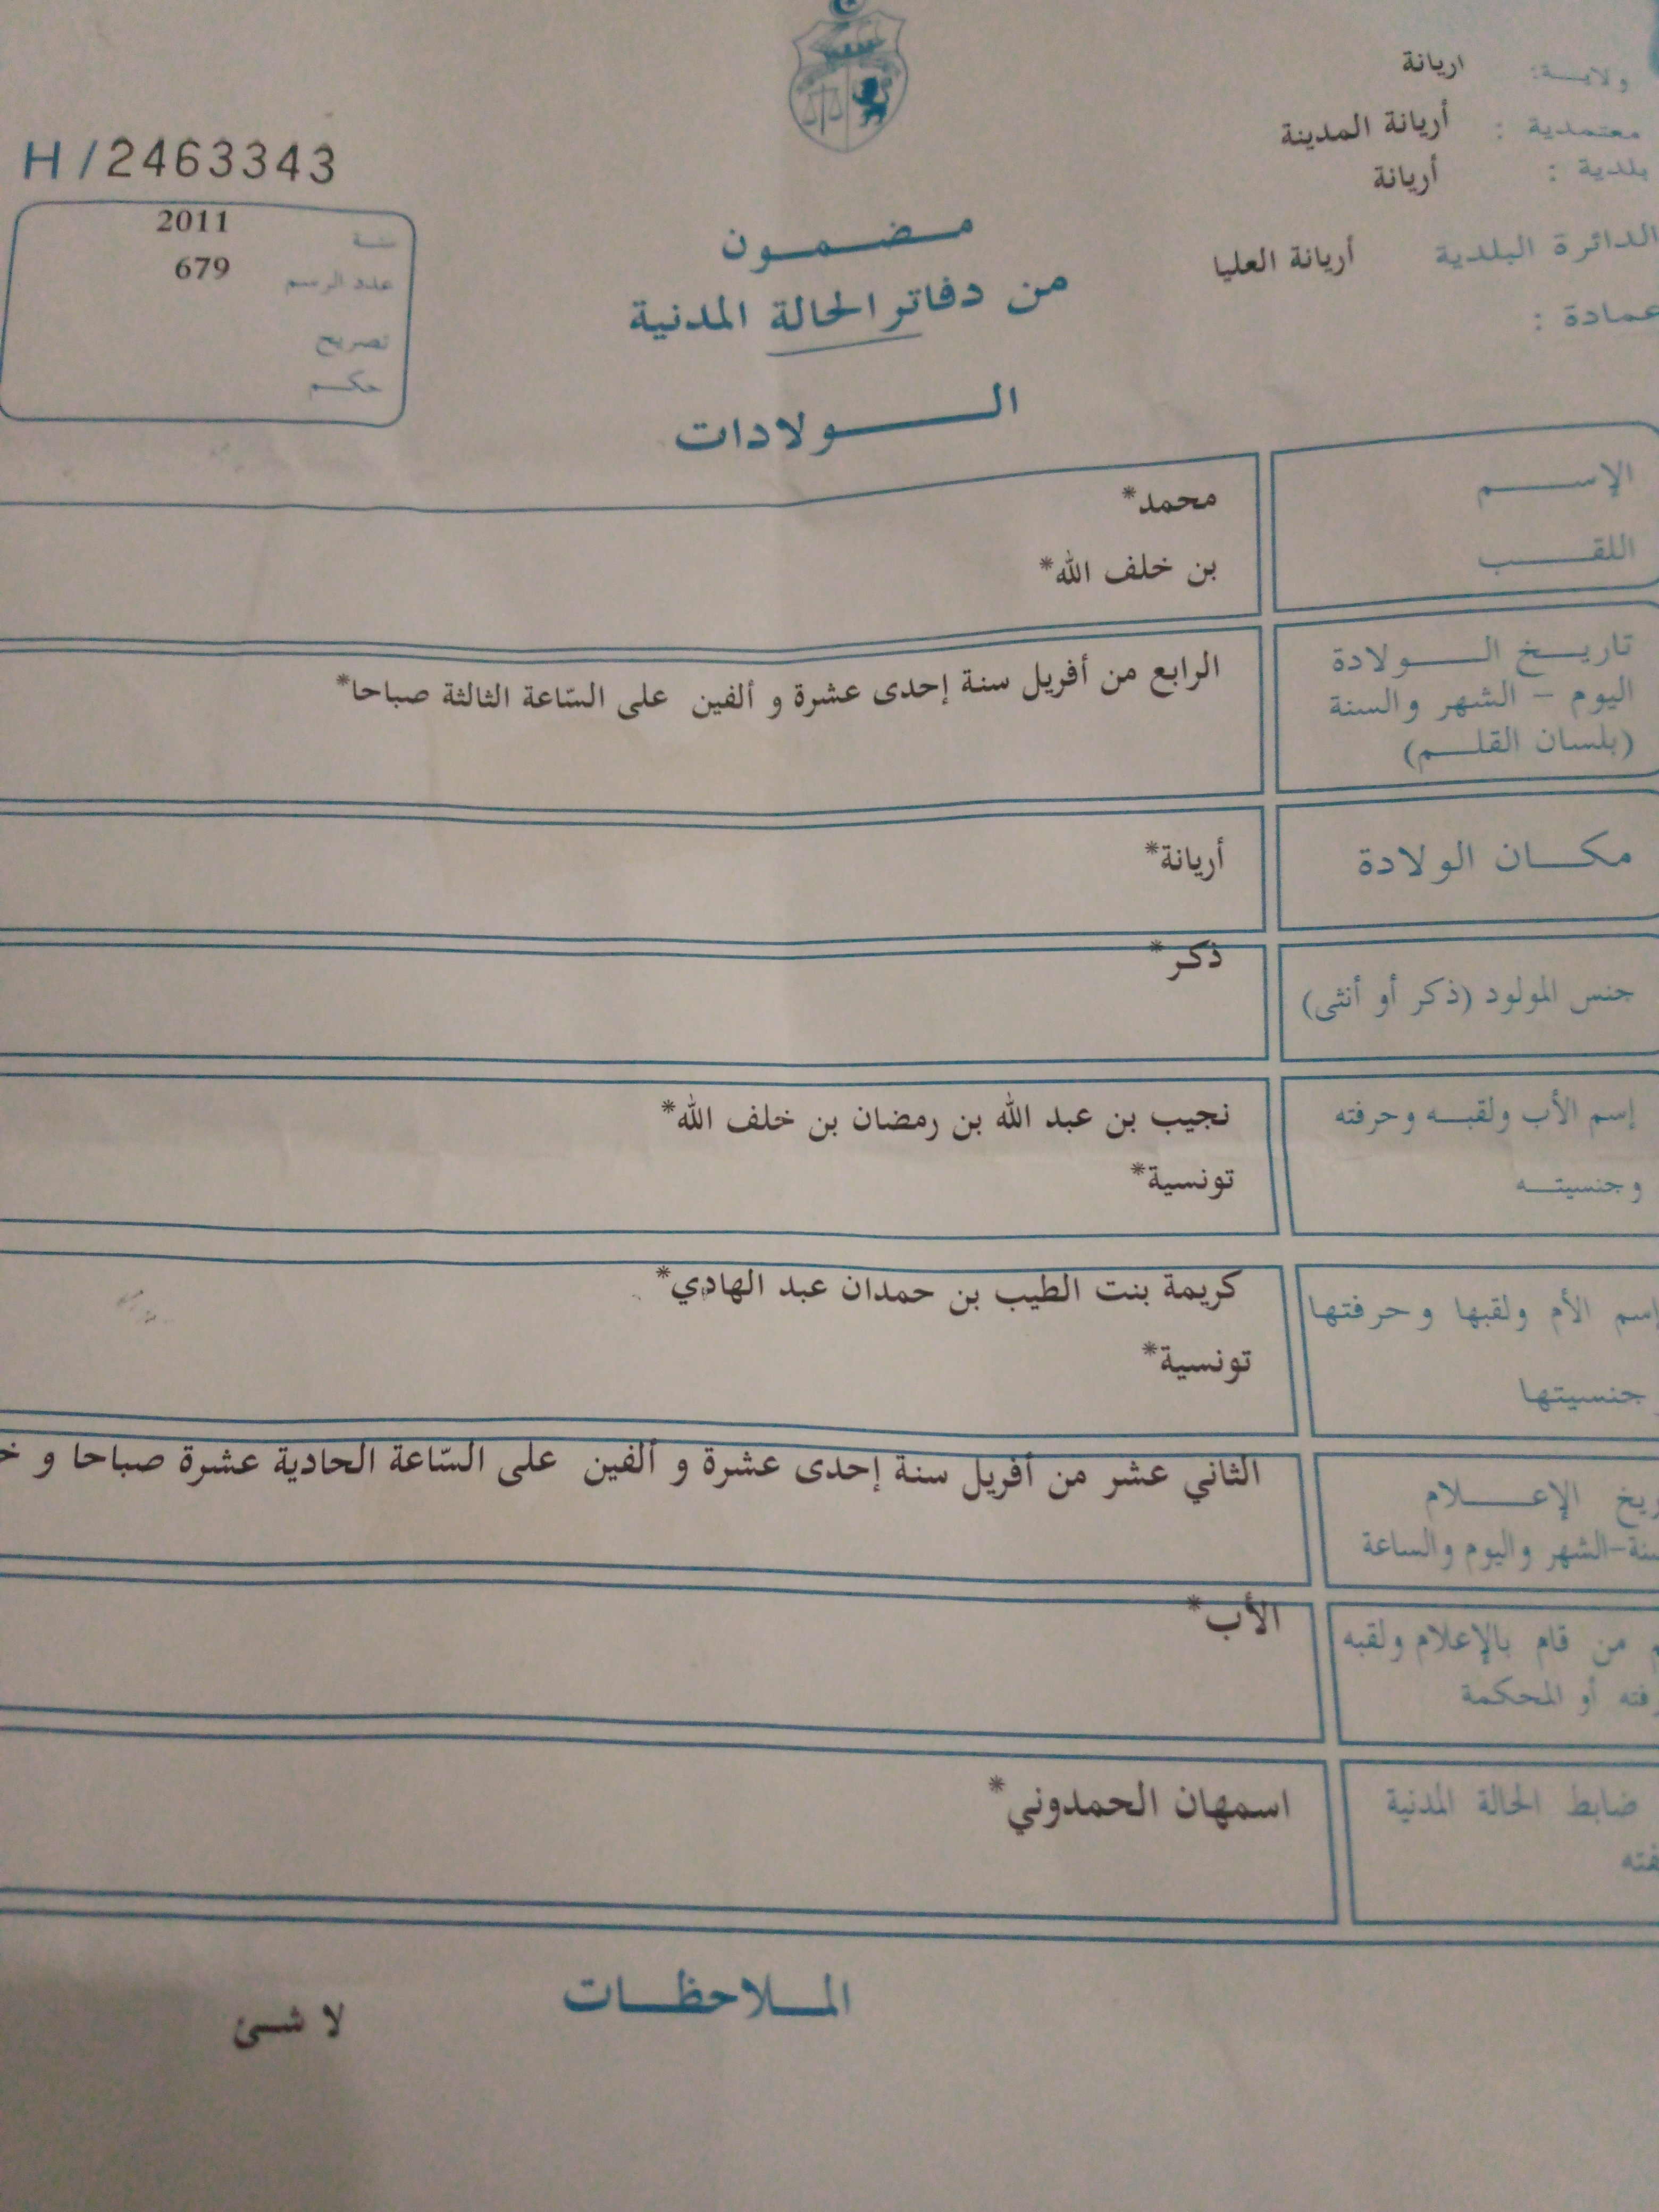 ولايـــة: اريانة
معتمدية : أريانة المدينة
بلدية : أريانة
الدائرة البلدية أريانة العليا
عمادة :
H/2463343
سنــة 2011
عدد الرسم 679
تصريح
حكــم
مـضـمـون
من دفاتر الحالة المدنية
الـولادات
الإســـم محمد*
اللقـــب بن خلف الله*
تاريـخ الـــولادة الرابع من أفريل سنة إحدى عشرة و ألفين على السّاعة الثالثة صباحا*
اليوم - الشهر والسنة
(بلسان القلـــم)
مكـــان الولادة أريانة*
جنس المولود (ذكر أو أنثى) ذكر*
إسم الأب ولقبــه وحرفته نجيب بن عبد الله بن رمضان بن خلف الله*
وجنسيتــه تونسية*
إسم الأم ولقبها وحرفتها كريمة بنت الطيب بن حمدان عبد الهادي*
جنسيتها تونسية*
الإعـــلام الثاني عشر من أفريل سنة إحدى عشرة و ألفين على السّاعة الحادية عشرة صباحا و
الشهر واليوم والساعة
من قام بالإعلام ولقبه الأب*
أو المحكمة
ضابط الحالة المدنية اسمهان الحمدوني*
الملاحظـات
لا شئ